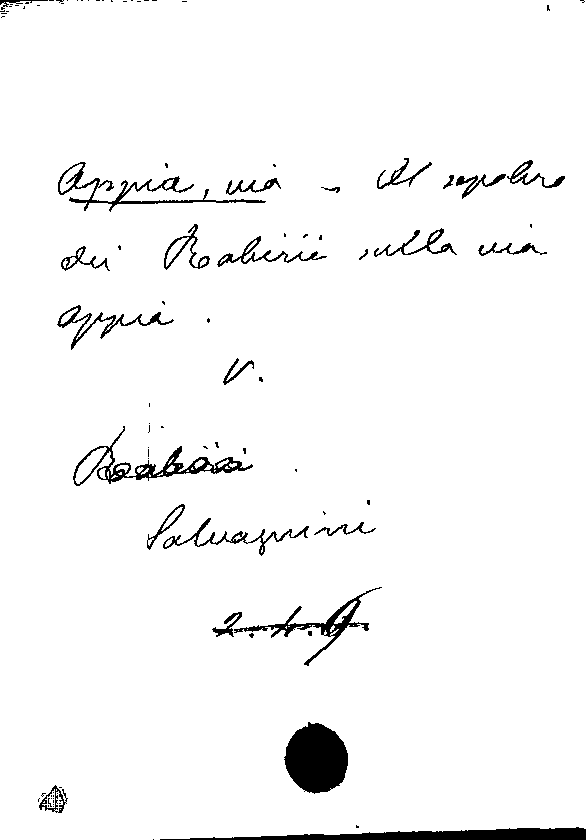 Appia, via – Il sepolcro
dei Rabirii sulla via
Appia.
V.
Rabirii
Salvagnini
2.4.9